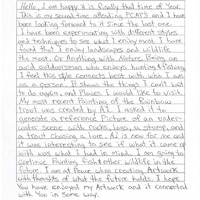 Hello, I am happy it is finally that time of Year.
This is my second time attending PCAPS and I have
been looking forward to it since the last one.
I have been experimenting with different styles
and techniques to see what I enjoy most. I have
found that I enjoy landscapes and wildlife
the most. Or Anything with Nature. Being an
avid outdoorsman who enjoys hunting & fishing
I feel this style connects best with who I am
as a person. It shows the things I can't wait
to do again, and Places I would like to visit.
My most recent Painting of the Rainbow
Trout was created by AI. I asked it to
generate a reference Picture of an under-
water scene with rocks, logs, a stump, and
a trout chasing a lure. AI is new for me and
it was interesting to see if what it came up
with was what I had in mind. I am going to
continue Painting fish & other wildlife in the
future. I am at Peace when creating Artwork
with thoughts of what the future holds. I hope
You have enjoyed my Artwork and it connected
with You in Some way.